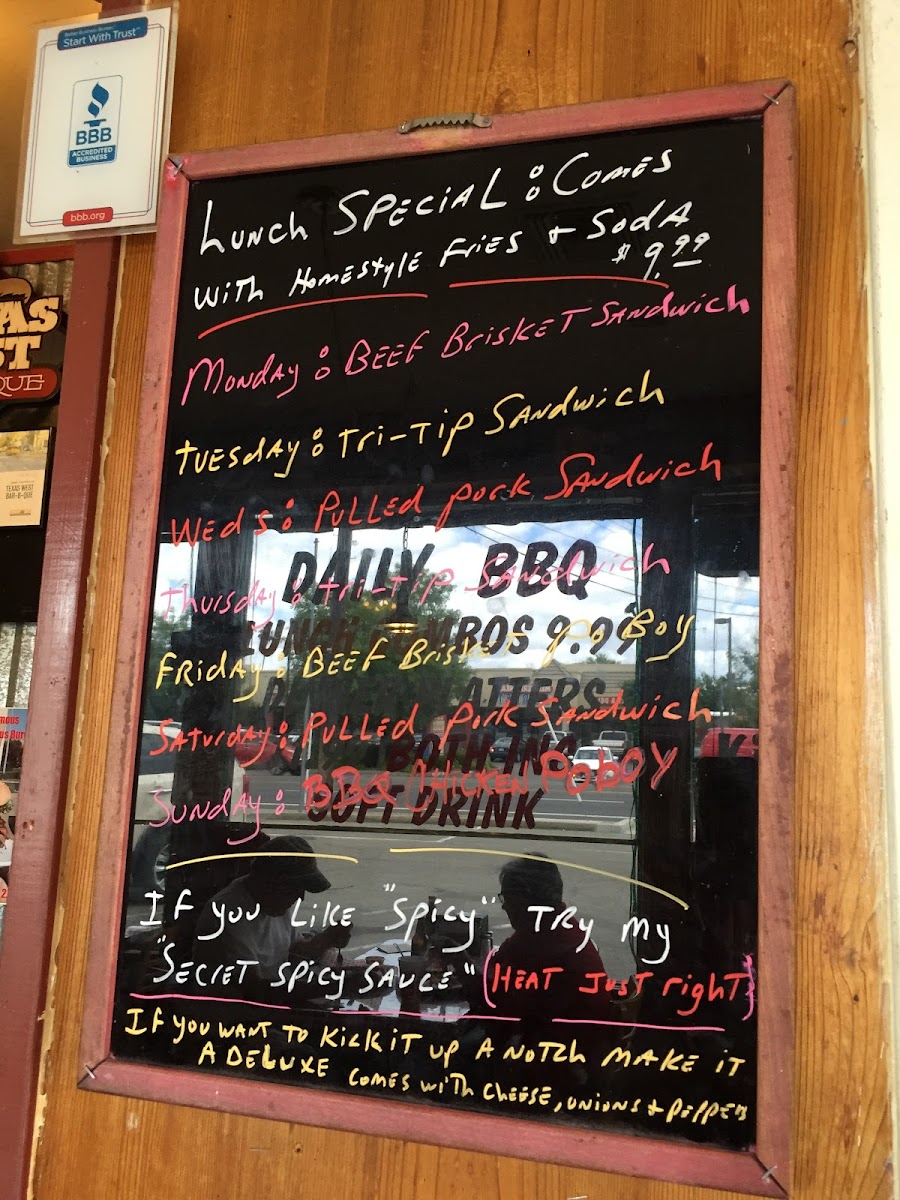 Better Business Bureau
Start With Trust
BBB
ACCREDITED
BUSINESS
bbb.org
AS
ST
QUE
TEXAS WEST
BAR-B-QUE
LUNCH SPECIAL: COMES
WITH HOMESTYLE FRIES + SODA
$9.99
MONDAY: BEEF BRISKET SANDWICH
TUESDAY: TRI-TIP SANDWICH
WEDS: PULLED PORK SANDWICH
DAILY BBQ
THURSDAY: TRI-TIP SANDWICH
LUNCH COMBOS 9.99
FRIDAY: BEEF BRISKET PO BOY
SATURDAY: PULLED PORK SANDWICH
SUNDAY: BBQ CHICKEN POBOY
SOFT DRINK
IF YOU LIKE "SPICY" TRY MY
"SECRET SPICY SAUCE" (HEAT JUST RIGHT)
IF YOU WANT TO KICK IT UP A NOTCH MAKE IT
A DELUXE COMES WITH CHEESE, ONIONS + PEPPERS